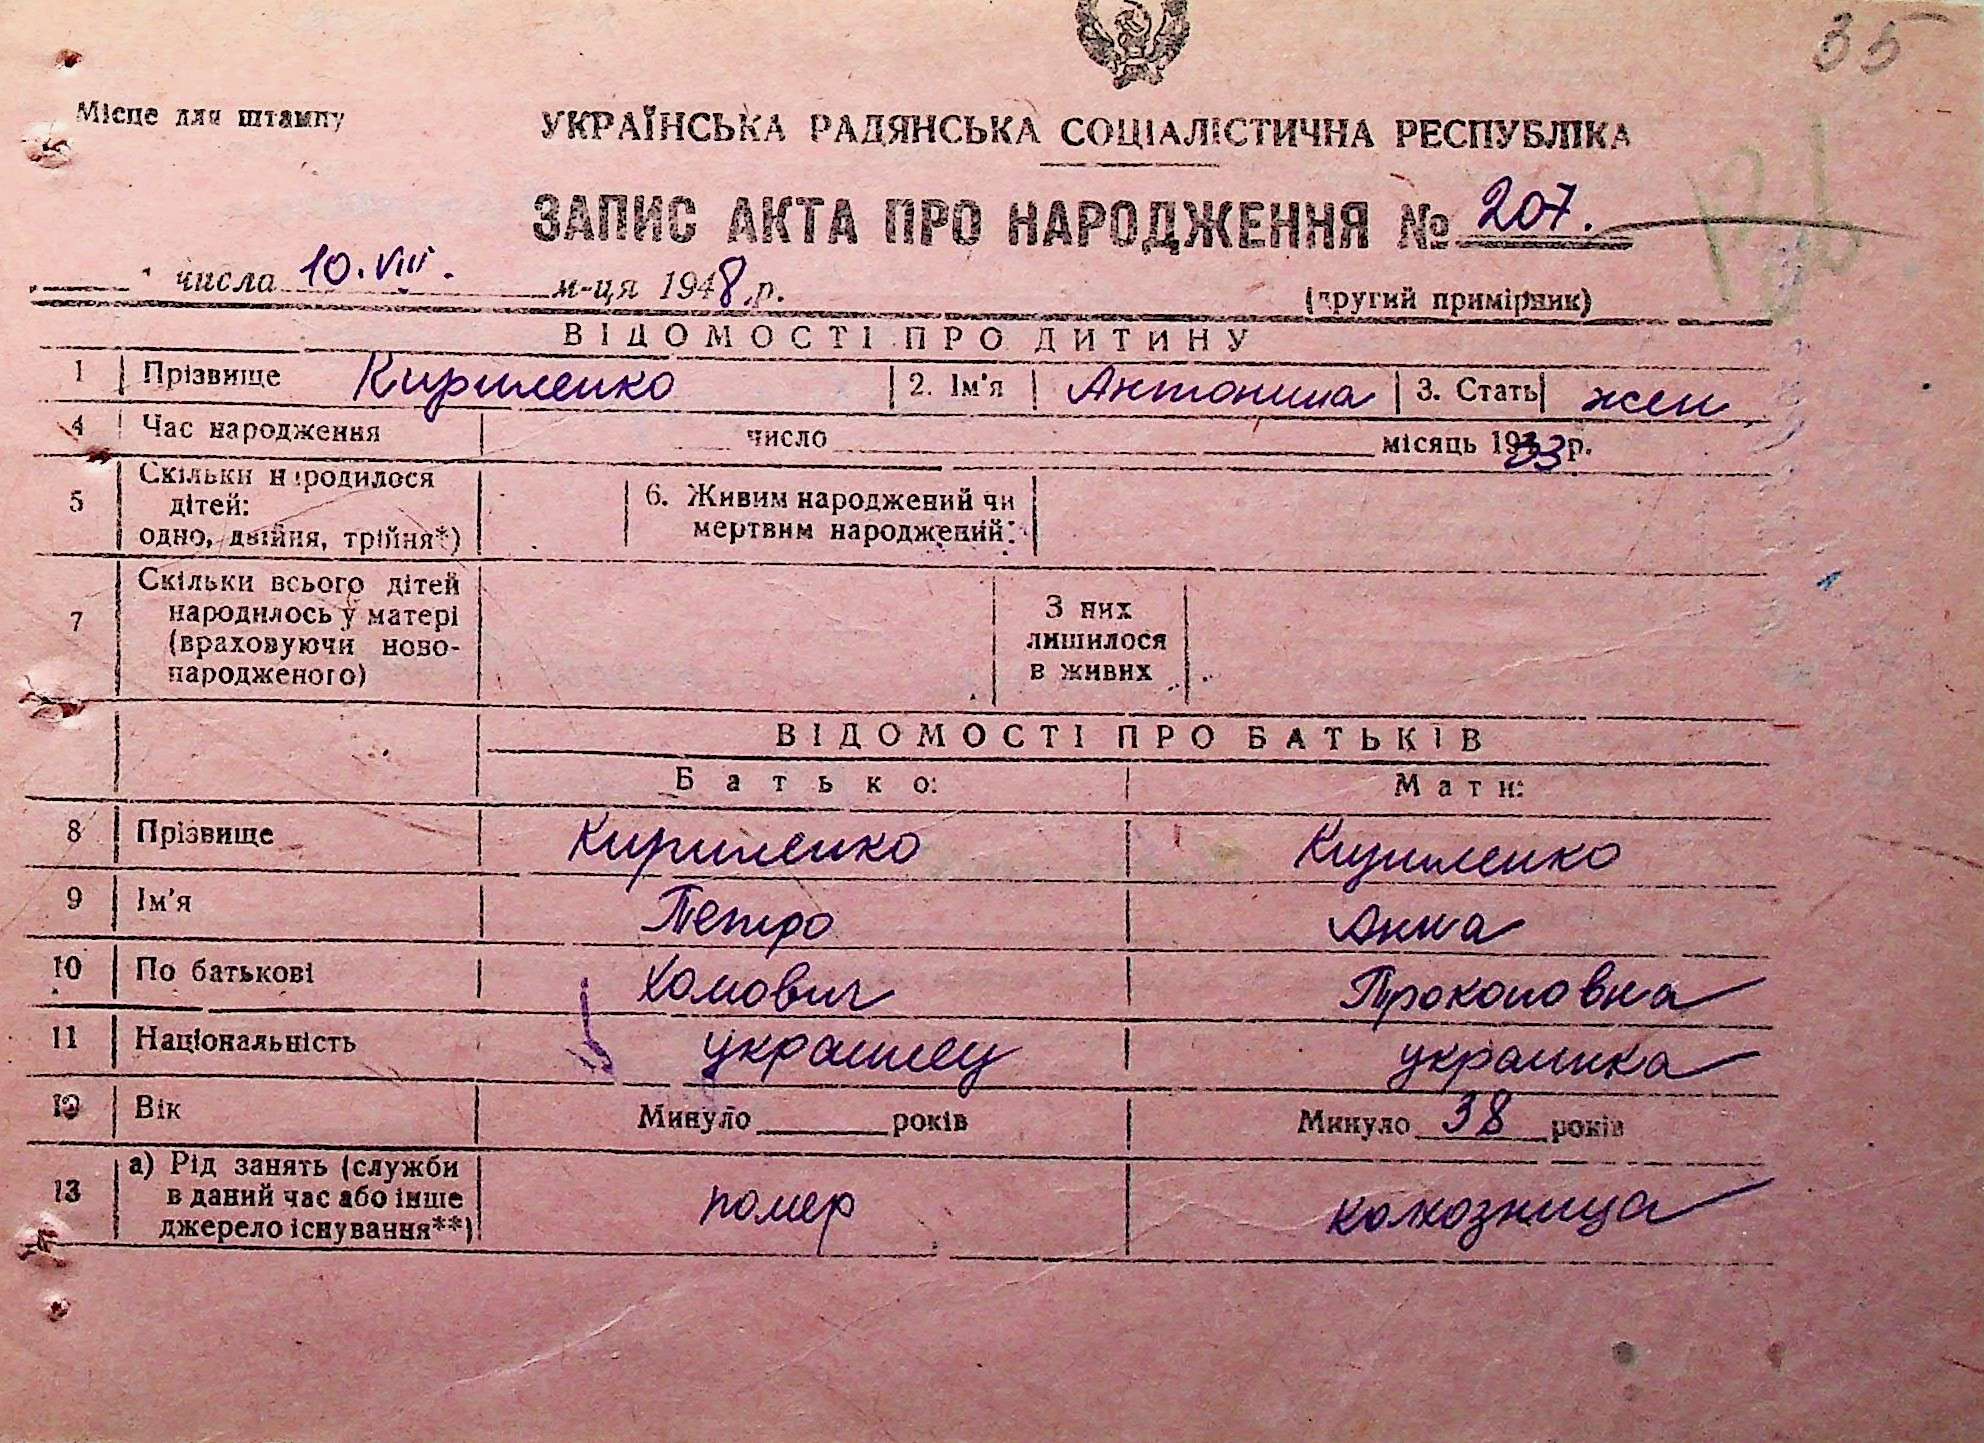 35
Місце для штампу
УКРАЇНСЬКА РАДЯНСЬКА СОЦІАЛІСТИЧНА РЕСПУБЛІКА
ЗАПИС АКТА ПРО НАРОДЖЕННЯ № 207.
числа 10.VIII. м-ця 1948 р.
(другий примірник)
ВІДОМОСТІ ПРО ДИТИНУ
1 Прізвище Кириленко 2. Ім'я Антонина 3. Стать жен
4 Час народження число місяць 1933 р.
5 Скільки народилося дітей: одно, двійня, трійня*) 6. Живим народжений чи мертвим народжений:
7 Скільки всього дітей народилось у матері (враховуючи ново-народженого) З них лишилося в живих
ВІДОМОСТІ ПРО БАТЬКІВ
Батько: Мати:
8 Прізвище Кириленко Кириленко
9 Ім'я Петро Анна
10 По батькові Хомович Прокоповна
11 Національність украинец украинка
12 Вік Минуло років Минуло 38 років
13 а) Рід занять (служби в даний час або інше джерело існування**) помер колхозница